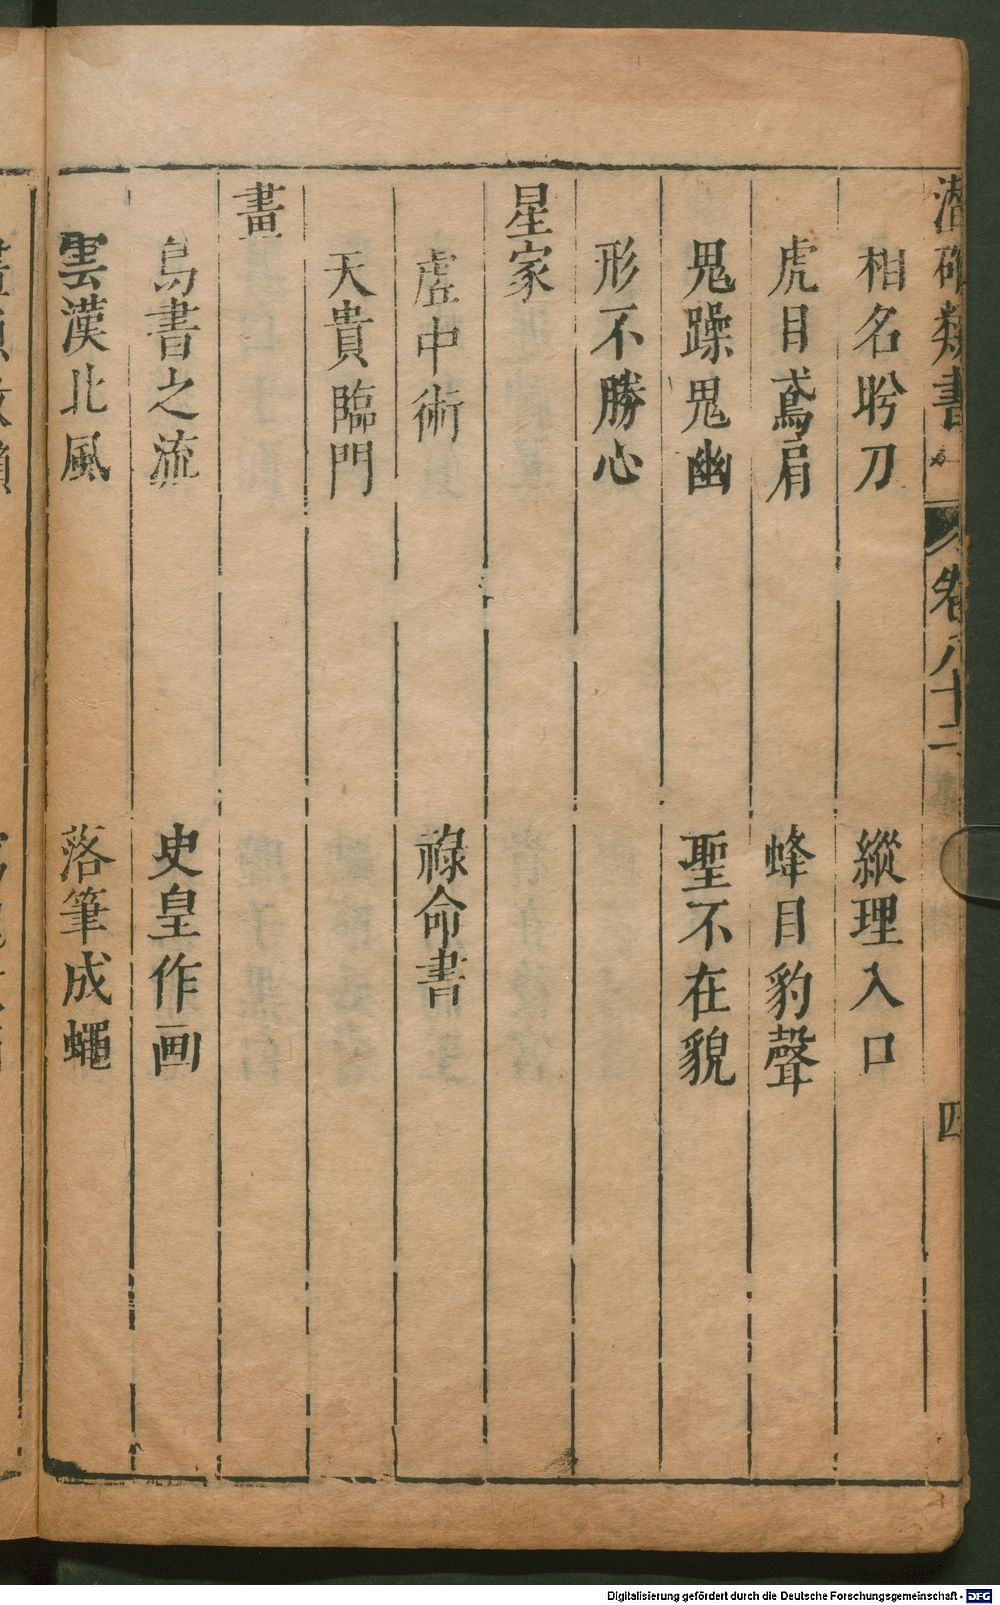 潛確類書 卷八十二 四
相名肹刀 縱理入口
虎目鳶肩 蜂目豹聲
鬼躁鬼幽 聖不在貌
形不勝心
星家
虛中術 祿命書
天貴臨門
畫
鳥書之流 史皇作画
雲漢北風 落筆成蠅
Digitalisierung gefördert durch die Deutsche Forschungsgemeinschaft - DFG